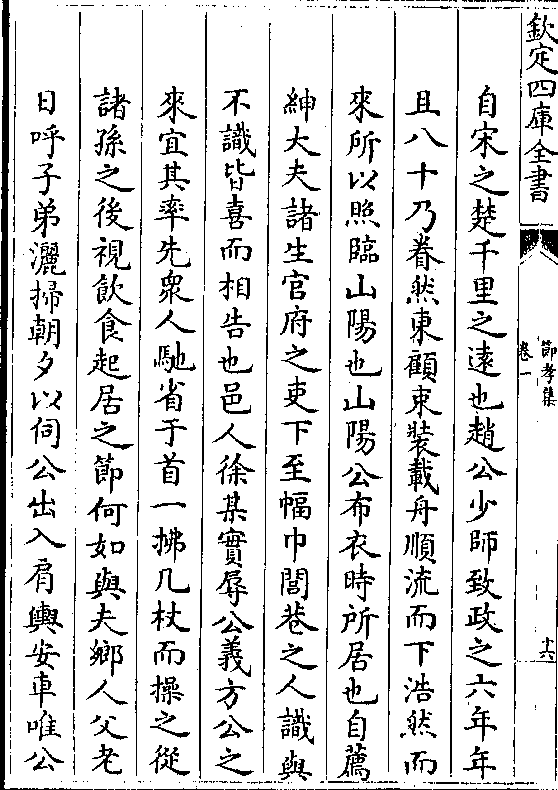 欽定四庫全書
節孝集
卷一
十六
自宋之楚千里之遠也趙公少師致政之六年年
且八十乃眷然東顧束裝載舟順流而下浩然而
來所以照臨山陽也山陽公布衣時所居也自薦
紳大夫諸生官府之吏下至幅巾閭巷之人識與
不識皆喜而相告也邑人徐某實辱公義方公之
來宜其率先衆人馳省于首一拂几杖而操之從
諸孫之後視飲食起居之節何如與夫鄉人父老
日呼子弟灑掃朝夕以伺公出入肩輿安車唯公